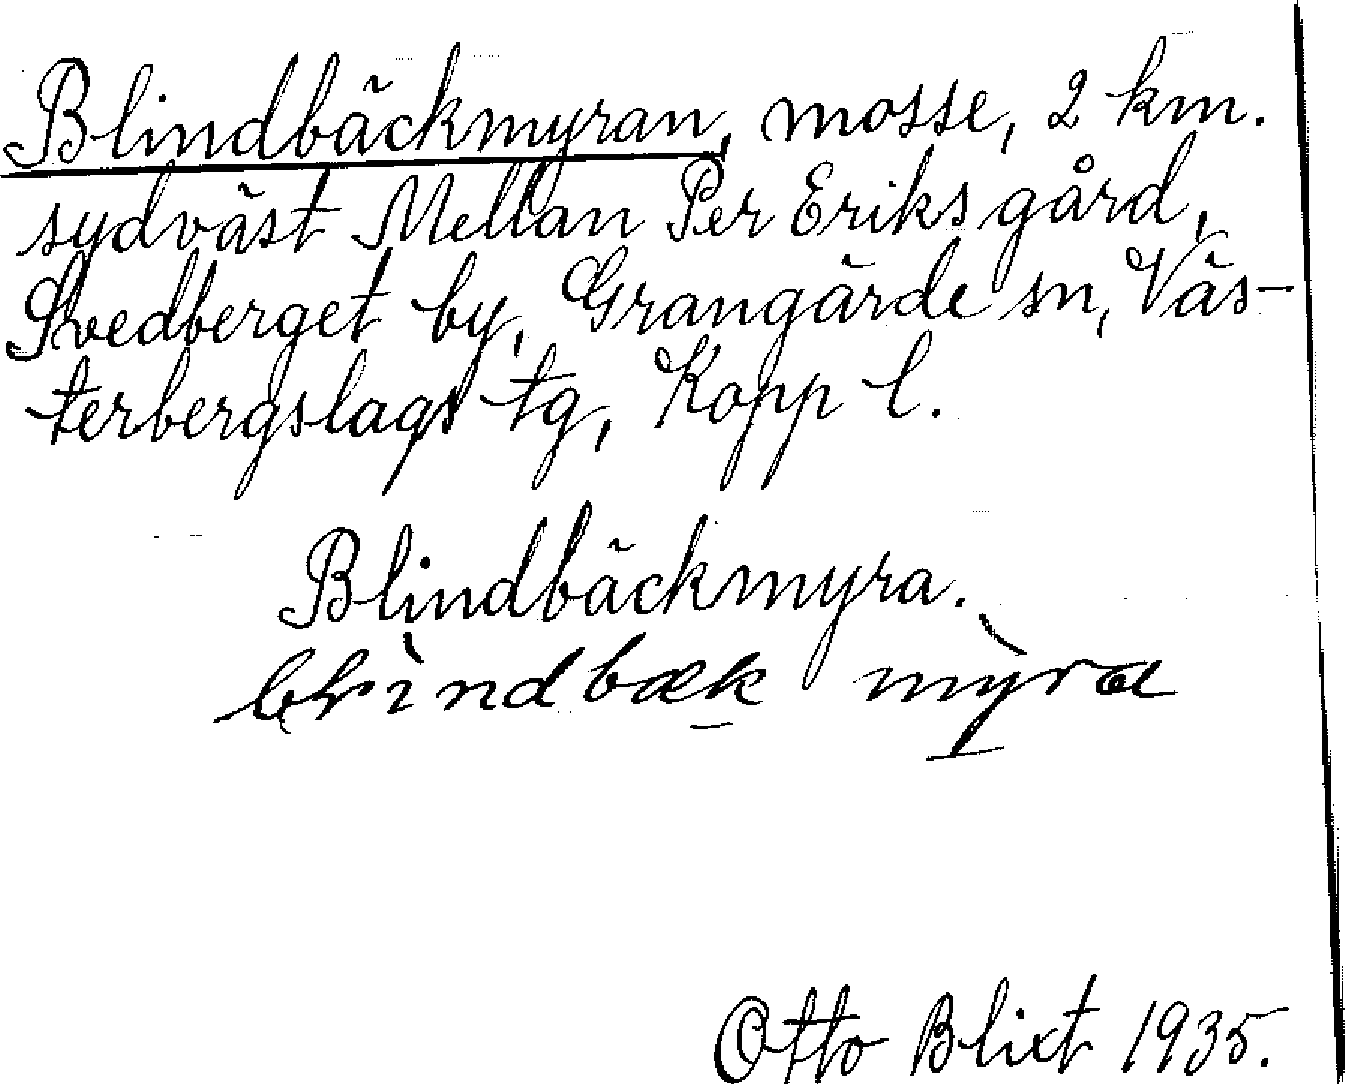 Blindbäckmyran, mosse, 2 km.
sydväst Mellan Per Eriks gård,
Svedberget by, Grangärde sn, Väs-
terbergslags tg, Kopp l.
Blindbäckmyra.
blìndbæk mỳra
Otto Blixt 1935.